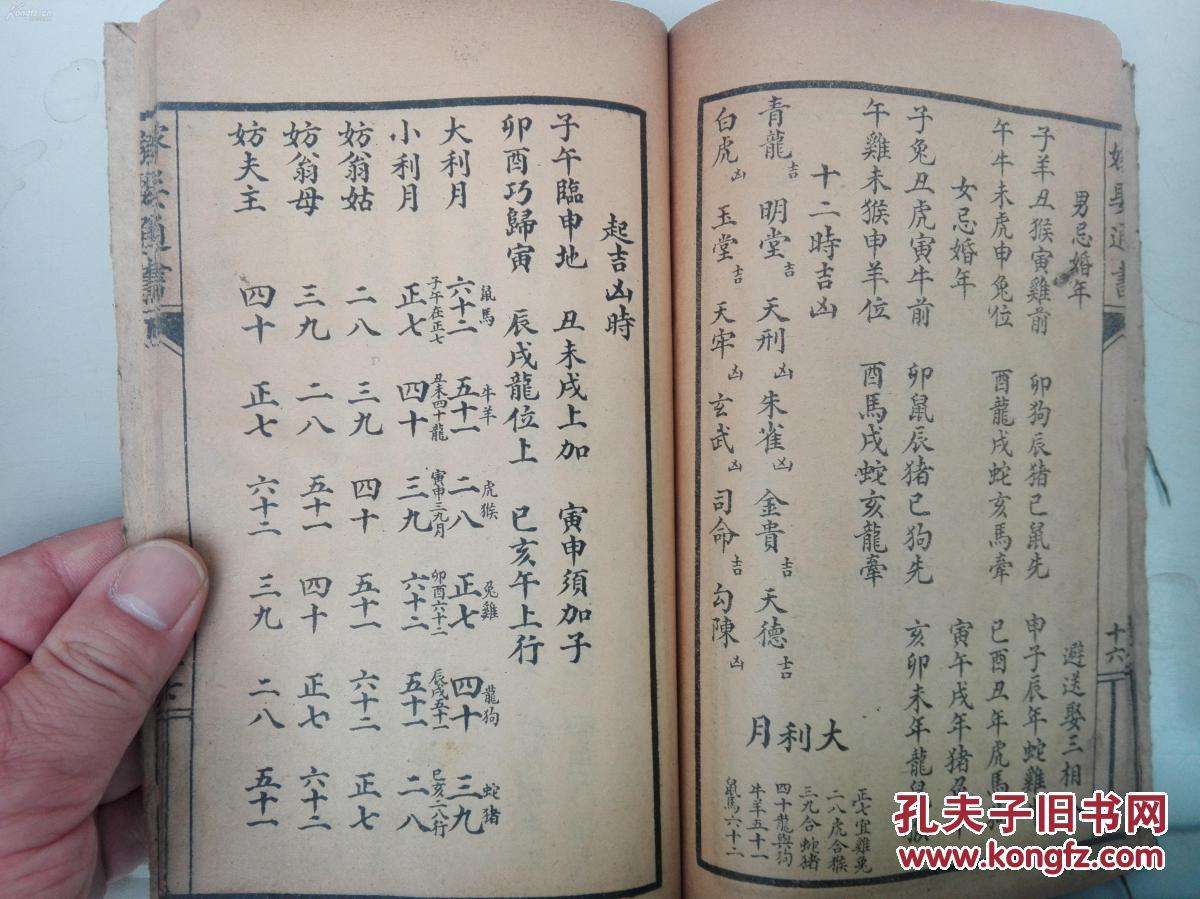 娶通書
十六
男忌婚年
子羊丑猴寅雞前 卯狗辰猪巳鼠先
午牛未虎申兔位 酉龍戌蛇亥馬牽
女忌婚年
子兔丑虎寅牛前 卯鼠辰猪巳狗先
午雞未猴申羊位 酉馬戌蛇亥龍牽
避送娶三相
申子辰年蛇雞
巳酉丑年虎馬
寅午戌年猪
亥卯未年龍鼠
十二時吉凶
青龍吉 明堂吉 天刑凶 朱雀凶 金貴吉 天德吉
白虎凶 玉堂吉 天牢凶 玄武凶 司命吉 勾陳凶
大利月
正七宜雞兔
二八虎合猴
三九合蛇猪
四十龍與狗
牛羊五十一
鼠馬六十二
起吉凶時
子午臨申地 丑未戌上加 寅申須加子
卯酉巧歸寅 辰戌龍位上 巳亥午上行
鼠馬 牛羊 虎猴 兔雞 龍狗 蛇猪
大利月 六十二 五十一 二八 正七 四十 三九
子午在正七 丑未四十龍 寅申三九月 卯酉六十二 辰戌五十一 巳亥二八行
小利月 正七 四十 三九 六十二 五十一 二八
妨翁姑 二八 三九 四十 五十一 六十二 正七
妨翁母 三九 二八 五十一 四十 正七 六十二
妨夫主 四十 正七 六十二 三九 二八 五十一
嫁娶通書
孔夫子旧书网
www.kongfz.com